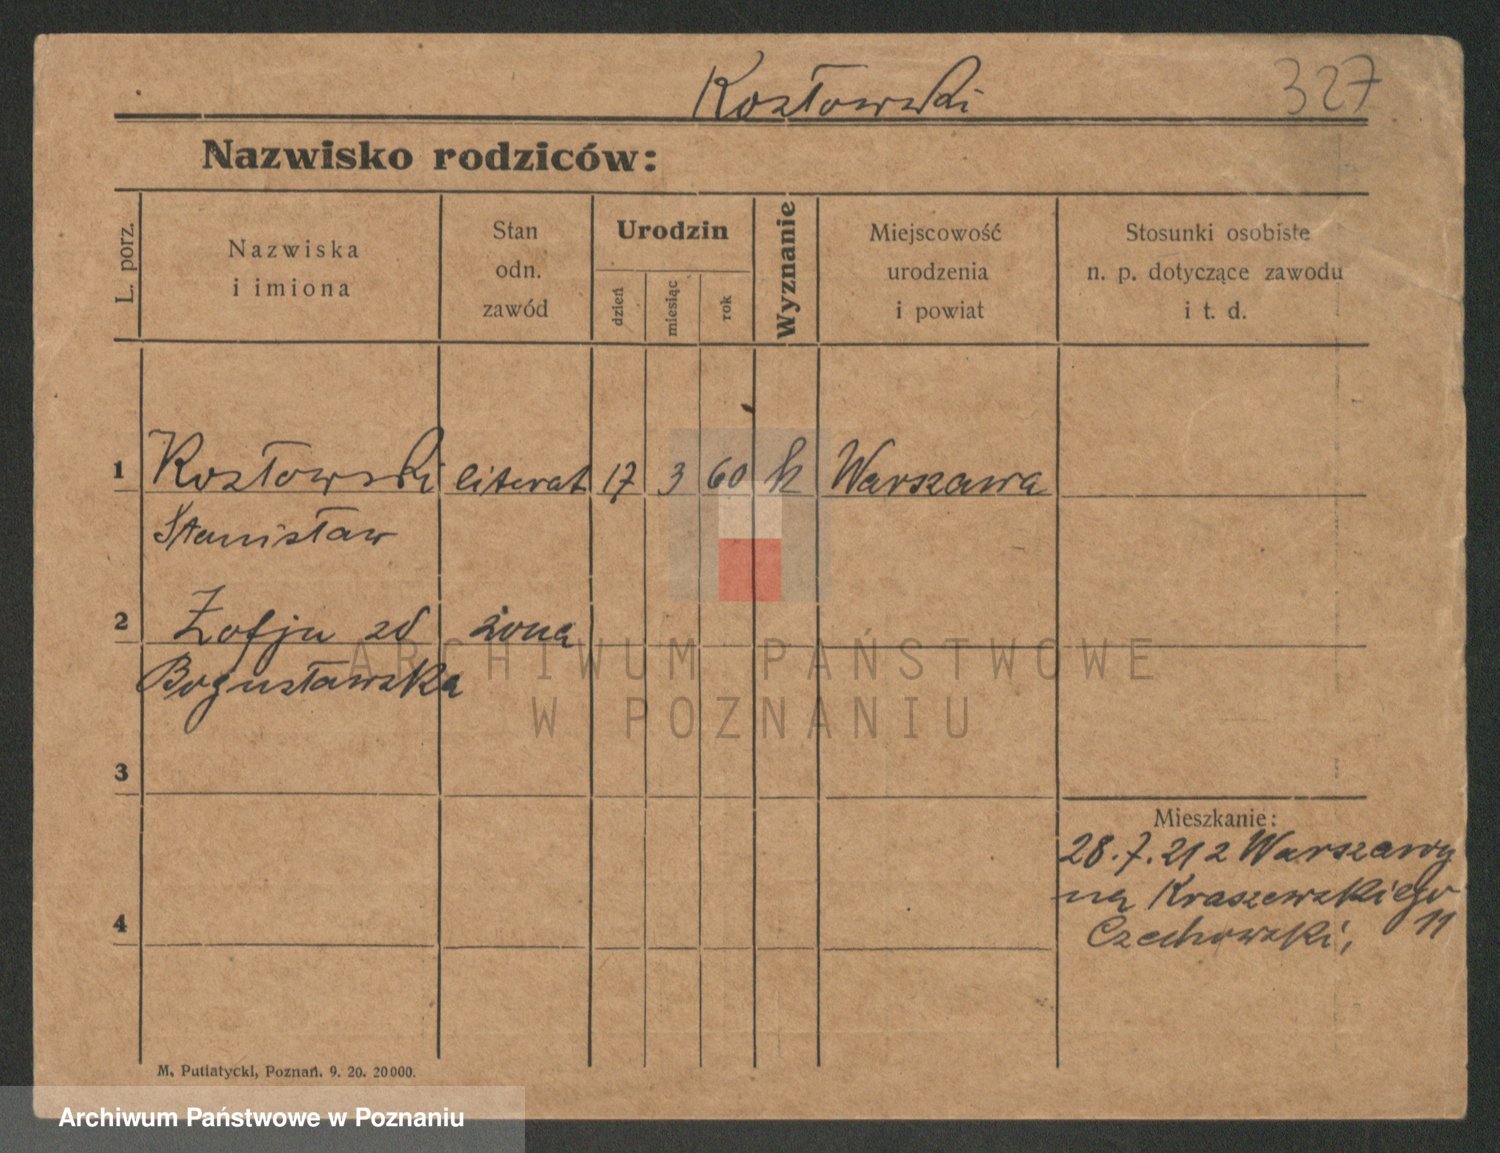 Kozłowski 327
Nazwisko rodziców:
L. porz.
Nazwiska
i imiona
Stan
odn.
zawód
Urodzin
dzień
miesiąc
rok
Wyznanie
Miejscowość
urodzenia
i powiat
Stosunki osobiste
n. p. dotyczące zawodu
i t. d.
1 Kozłowski literat 17 3 60 k Warszawa
Stanisław
2 Zofja zd żona
Bogusławska
ARCHIWUM PAŃSTWOWE
W POZNANIU
3
Mieszkanie:
28.7.21 z Warszawy
na Kraszewskiego
11
Czechowski,
4
M. Putiatycki, Poznań. 9. 20. 20000.
Archiwum Państwowe w Poznaniu